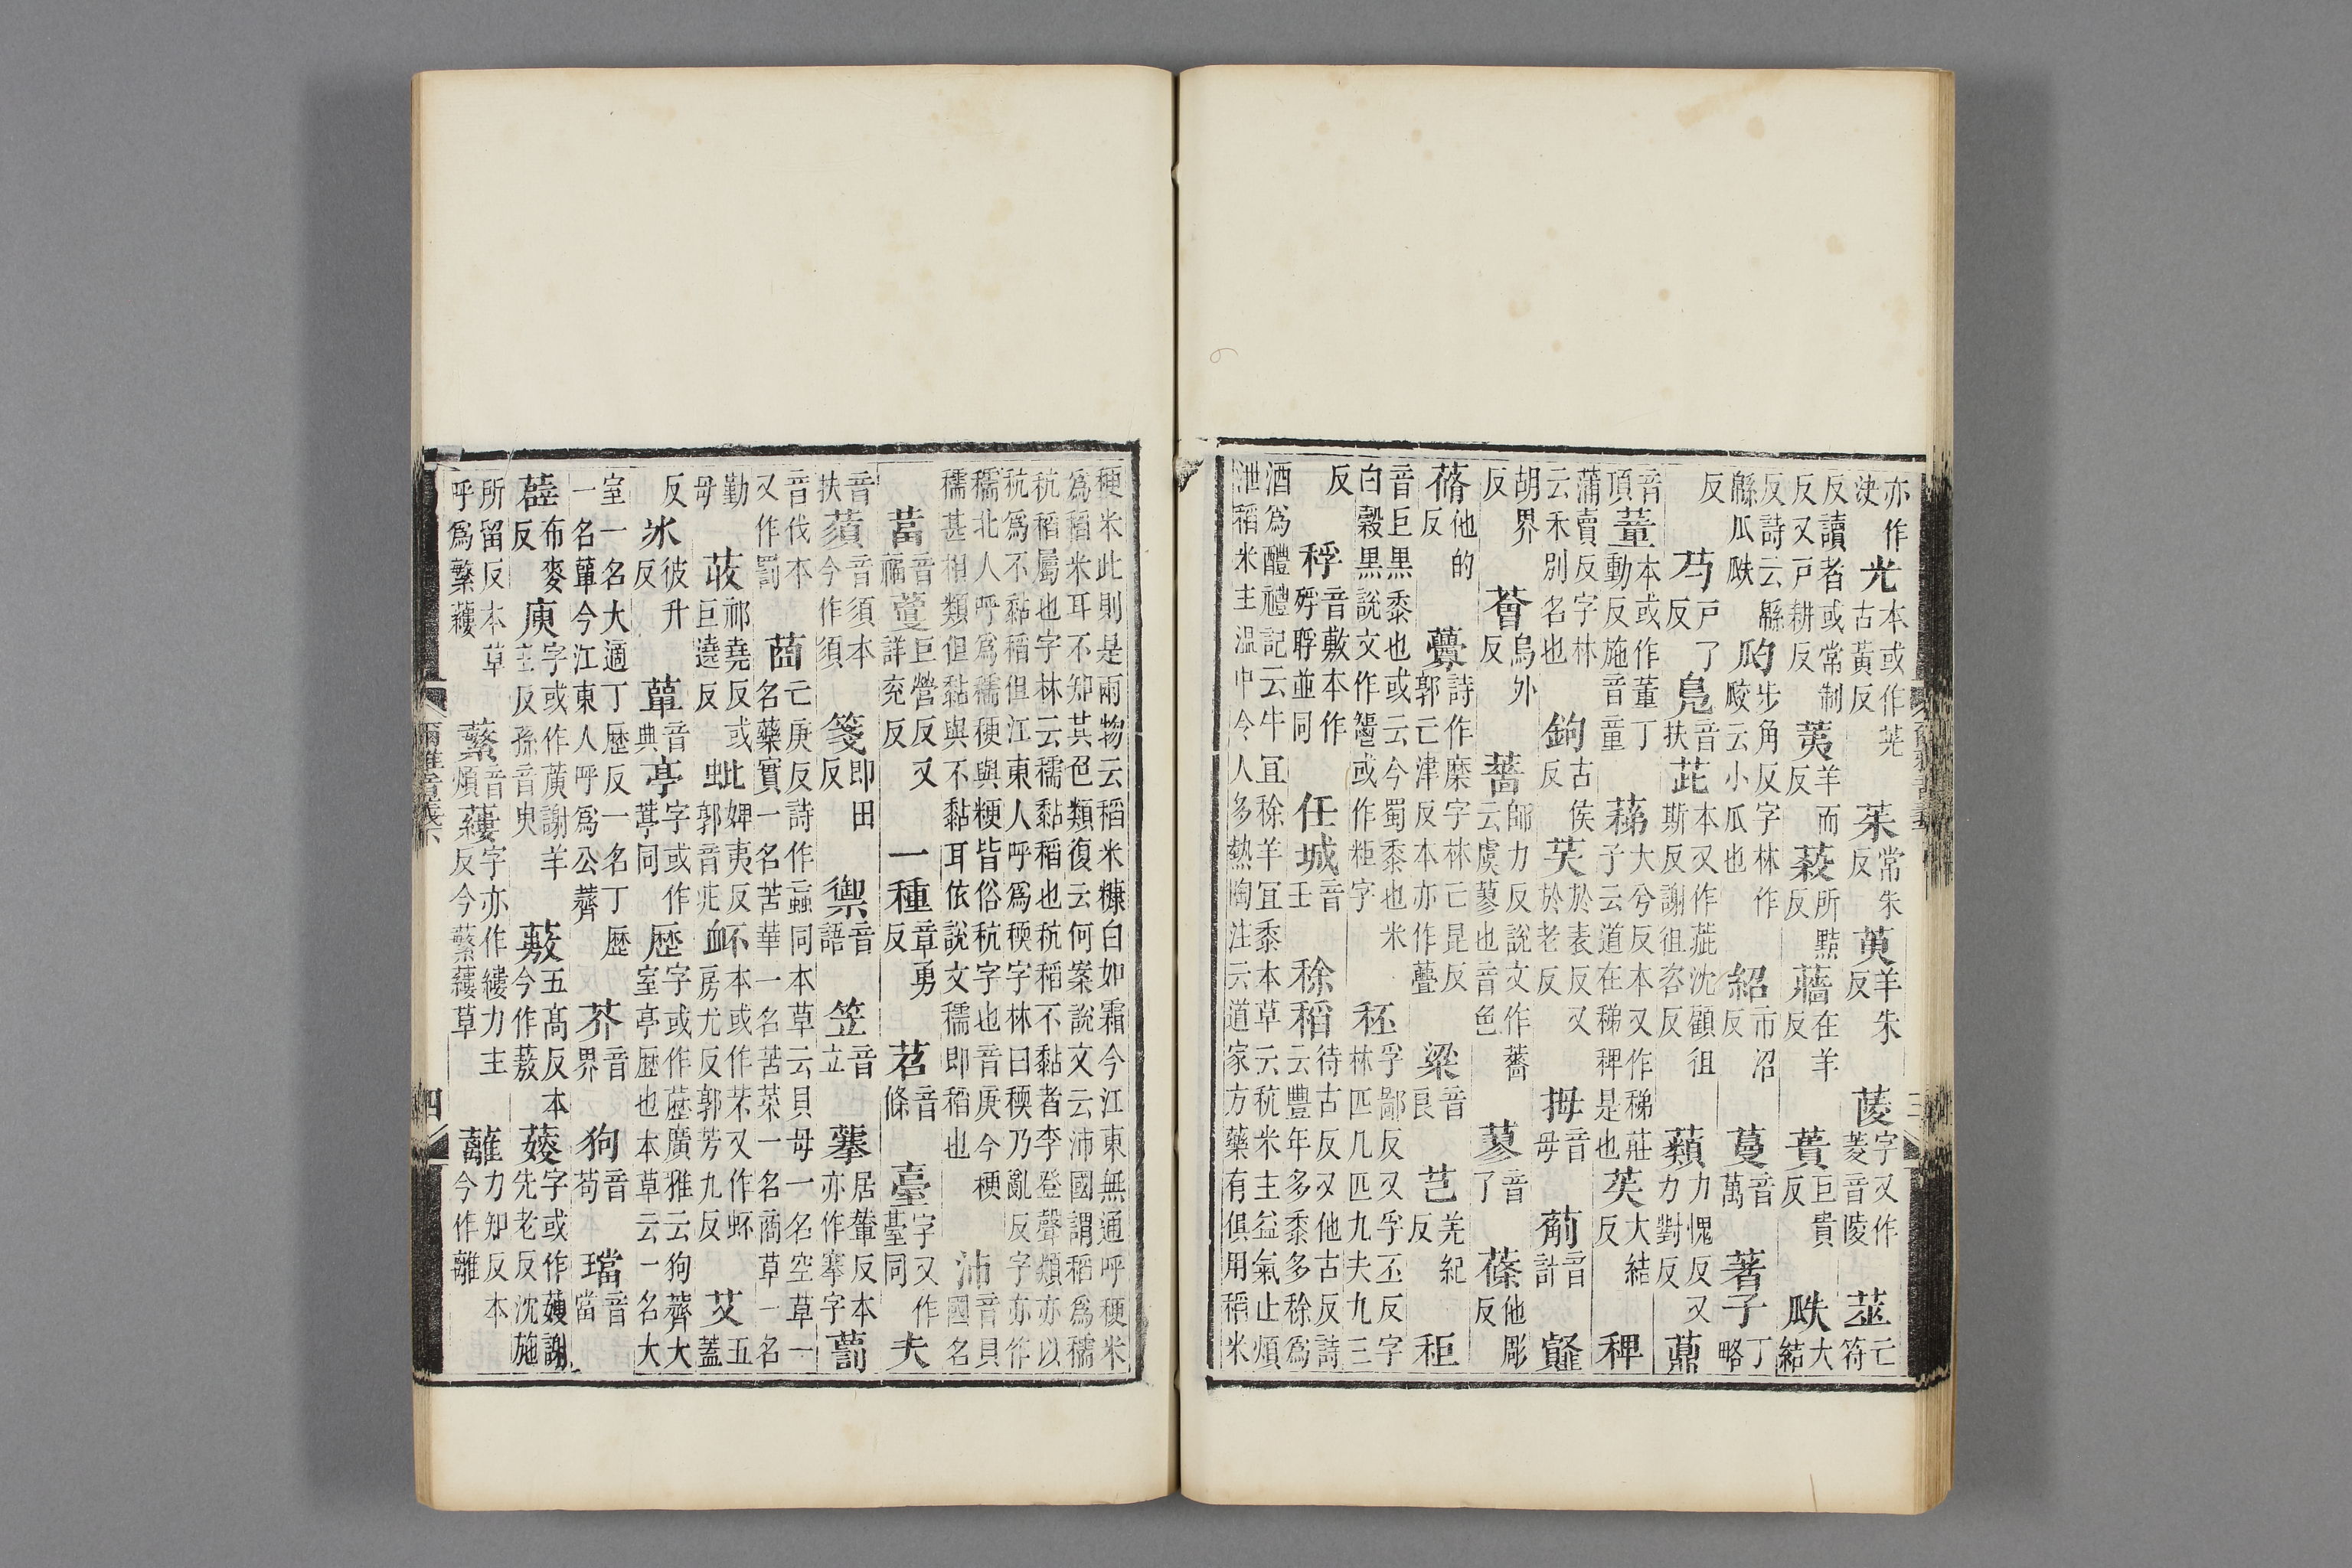 亦作決光本或作茪古黃反茱常朱反萸羊朱反䔖字又作菱音陵荎亡符
反讀者或常制反又戶耕反荑羊而反蔱所黠反蘠在羊反蕢巨貴反瓞大結
反詩云緜緜瓜瓞瓝步角反字林作㼎云小瓜也紹市沼反蔓音萬著子丁略
反芍戶了反鳧音扶茈本又作䒨沈顧徂斯反謝徂咨反蘱力愧反又力對反薡
音頂董本或作蕫丁動反施音童蕛大兮反本又作稊莊子云道在稊稗是也苵大結反稗
蒲賣反字林云禾別名也鉤古侯反芺於表反又於老反拇音毋薊音計鼞
胡界反薈烏外反薔師力反說文作薔云虞蓼也音色蓼音了蓧他彫反
蓨他的反虋詩作穈字林亡昆反郭亡津反本亦作虋粱音良芑羌紀反秬
音巨黑黍也或云今蜀黍也米白穀黑說文作䰜或作粔字秠孚鄙反又孚丕反字林匹几匹九夫九三
反稃音敷本作䊇䎔並同任城音壬稌稻待古反又他古反詩云豐年多黍多稌爲
酒爲醴禮記云牛宜稌羊宜黍本草云秔米主益氣止煩泄稻米主溫中令人多熱陶注云道家方藥有俱用稻米
稉米此則是兩物云稻米糠白如霜今江東無通呼稉米爲稻米耳不知其色類復云何案說文云沛國謂稻爲稬
秔稻屬也字林云稬黏稻也秔稻不黏者李登聲類亦以秔爲不黏稻但江東人呼爲稬字林曰稬乃亂反字亦作
稬北人呼爲稬稉與粳皆俗秔字也音庚今稉稬甚相類但黏與不黏耳依說文稬即稻也沛音貝國名
葍音福藑巨營反又詳兗反一種章勇反苕音條臺字又作薹同夫
音扶蕦音須本今作須箋即田反禦音語笠音立虆居輦反本亦作搴字藅
音伐本又作罰莔亡庚反詩作蝱同本草云貝母一名空草一名藥實一名苦華一名苦菜一名商草一名
勤母荍祁堯反或巨遶反蚍婢夷反郭音疕衃本或作芣又作蚽房尤反郭芳九反艾五蓋
反冰彼升反葷音典亭字或作葶同歷字或作藶廣雅云狗薺大室亭歷也本草云一名大
室一名大適丁歷反一名丁歷一名蕇今江東人呼爲公薺芥音界狗音苟璫音當
薜布麥反庾字或作䔟謝羊主反孫音臾蔜五高反本今作䔩薐字或作䕅謝先老反沈施
所留反本草呼爲蘩蔞蘩音煩蔞字亦作縷力主反今蘩蔞草蘺力知反本今作離
爾雅音義下
四